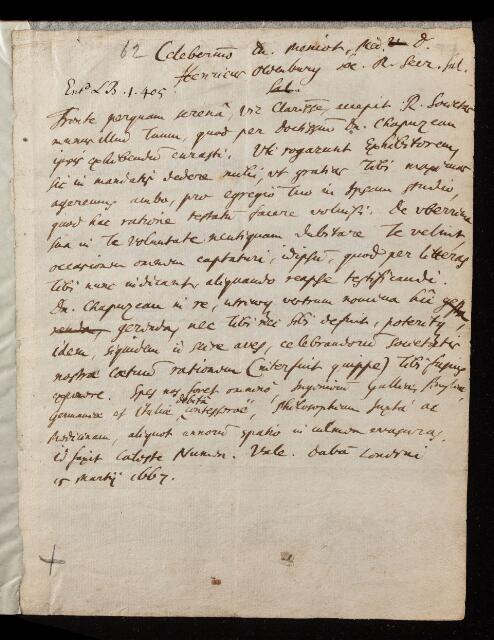 62 Celeberrimo Dn. Meniot, Med. D.
Henricus Oldenburg Soc. R. Secr. Sal.
Sal.
Entd LB. 1. 405
Fronte perquam serenâ, Vir Clarisse accepit R. Societas
munus illud Tuum, quod per Doctissum Dn. Chapuzeau
ipsis exhibendum curasti. Uti rogarunt Exhibitorem,
sic in mandatis dedere mihi, ut gratias Tibi maximas
ageremus ambo, pro egregio tuo in Ipsam studio,
quod hac ratione testatum facere voluisti. De uberrima
sua in Te voluntate neutiquam dubitare Te velint,
occasionem omnem captaturi, idipsum, quod per litteras
Tibi nunc indicant, aliquando reapse testificandi.
Dn. Chapuzeau in re, vestro nomine hîc
gerenda, nec Tibi nec sibi defuit, poterit
idem, siquidem id scire aves, celebrandorum Societatis
nostrae coetuum rationem (interfuit quippe) Tibi
exponere. Spes nos fovet omnino, Ingeniis Galliae, Angliae
Germaniae et Italiae debitè Philosophiam juxta ac
Medicinam, aliquot annorum spatio in culmen evasuras.
id faxit Caeleste Numen. Vale. Dabam Londini
15 Martij 1667.